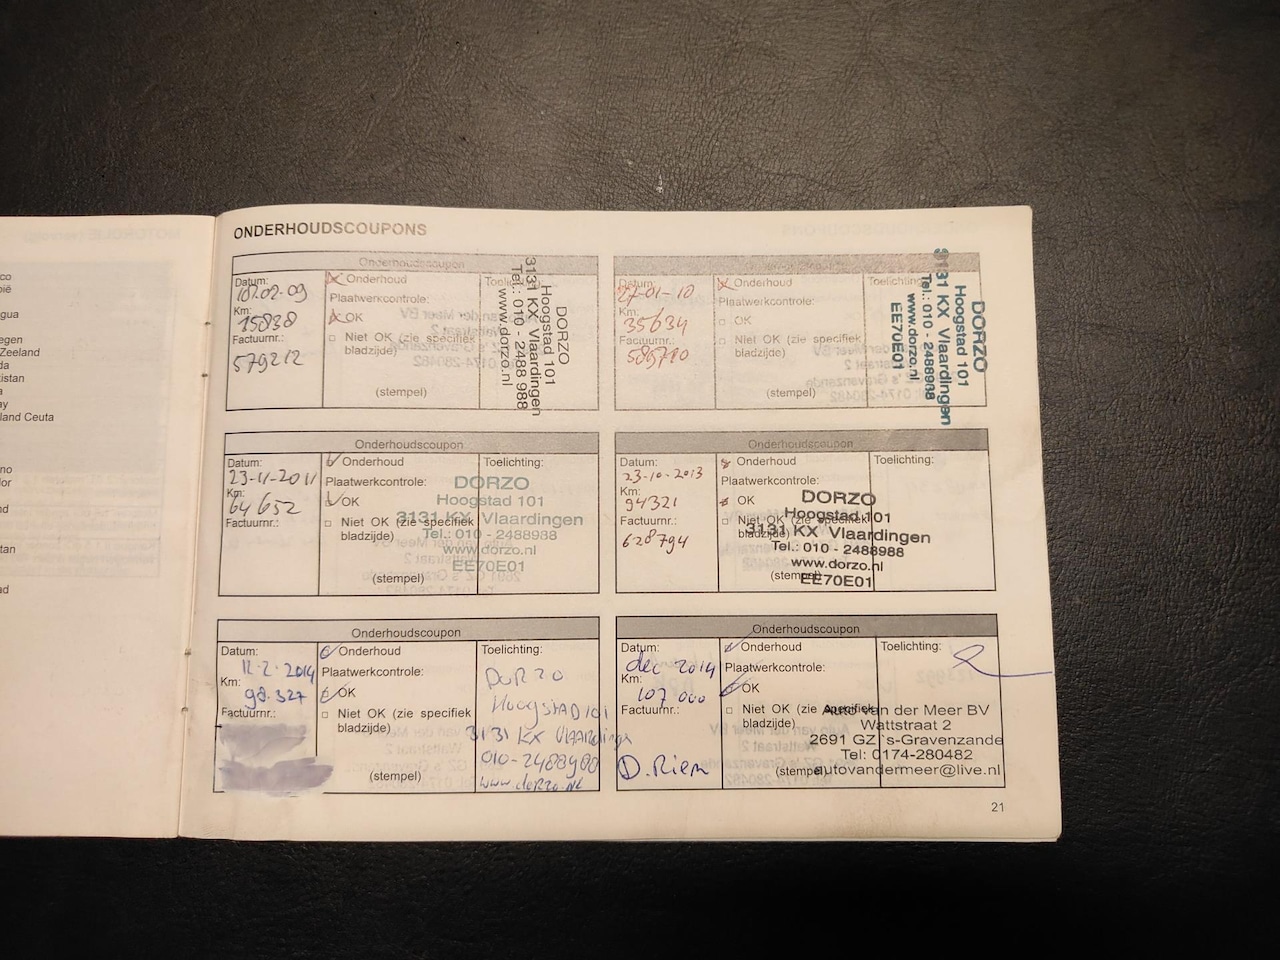 co
gua
egen
Zeeland
da
kistan
a
ay
land Ceuta
no
or
nd
stan
ad
ONDERHOUDSCOUPONS
Onderhoudscoupon
Datum:
Km:
15838
Factuurnr.:
579212
Onderhoud
Plaatwerkcontrole:
OK
Niet OK (zie specifiek
bladzijde)
(stempel)
DORZO
Hoogstad 101
3131 KX Vlaardingen
Tel.: 010 - 2488 988
www.dorzo.nl
Datum:
27-01-10
Km:
35634
Factuurnr.:
Onderhoud
Plaatwerkcontrole:
OK
Niet OK (zie specifiek
bladzijde)
(stempel)
Toelichting:
DORZO
Hoogstad 101
3131 KX Vlaardingen
Tel.: 010 - 2488988
www.dorzo.nl
EE70E01
Onderhoudscoupon
Datum:
23-11-2011
Km:
64652
Factuurnr.:
Onderhoud
Plaatwerkcontrole:
OK
Niet OK (zie specifiek
bladzijde)
(stempel)
Toelichting:
DORZO
Hoogstad 101
3131 KX Vlaardingen
Tel.: 010 - 2488988
www.dorzo.nl
EE70E01
Onderhoudscoupon
Datum:
23-10-2013
Km:
94321
Factuurnr.:
628794
Onderhoud
Plaatwerkcontrole:
OK
Niet OK (zie specifiek
bladzijde)
(stempel)
Toelichting:
DORZO
Hoogstad 101
3131 KX Vlaardingen
Tel.: 010 - 2488988
www.dorzo.nl
EE70E01
Onderhoudscoupon
Datum:
12-2-2014
Km:
98.327
Factuurnr.:
Onderhoud
Plaatwerkcontrole:
OK
Niet OK (zie specifiek
bladzijde)
(stempel)
Toelichting:
DORZO
Hoogstad 101
3131 KX Vlaardingen
010-2488988
www.dorzo.nl
Onderhoudscoupon
Datum:
dec 2014
Km:
107 000
Factuurnr.:
D. Riem
Onderhoud
Plaatwerkcontrole:
OK
Niet OK (zie specifiek
bladzijde)
(stempel)
Toelichting:
Auto van der Meer BV
Wattstraat 2
2691 GZ `s-Gravenzande
Tel: 0174-280482
autovandermeer@live.nl
21